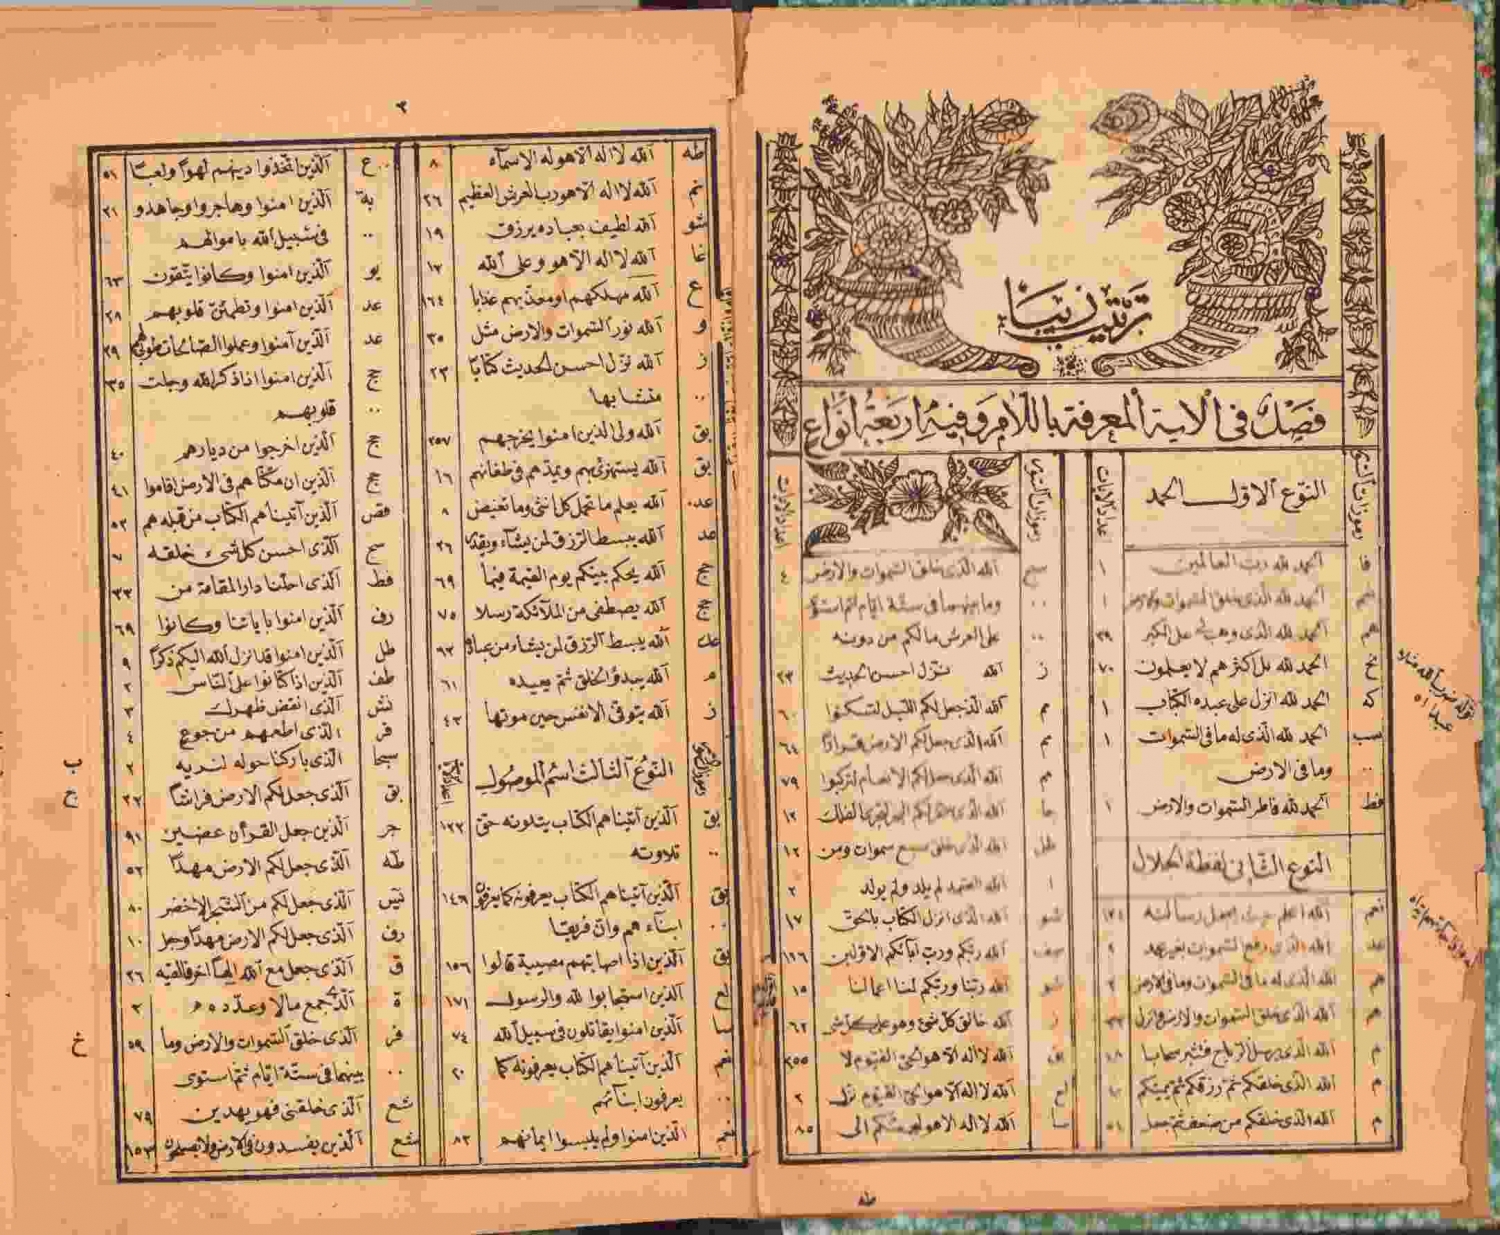 ترتيب زيبا
فصل في الاية المعرفة باللام وفيه اربعة أنواع
رموزات السور
عداد الايات
النوع الاول الحمد
فا الحمد لله رب العالمين ١
الحمد لله الذى خلق السموات والارض ١
هم الحمد لله الذى وهب لى على الكبر ٣٩
نح الحمد لله بل اكثرهم لا يعلمون ٧٠
كه الحمد لله انزل على عبده الكتاب ١
سب الحمد لله الذى له ما فى السموات ١
.. وما فى الارض
فط الحمد لله فاطر السموات والارض ١
النوع الثانى لفظة الجلال
نعم الله اعلم حيث يجعل رسالته ١٢٤
عد الله الذى رفع السموات بغير عمد ٢
هم الله الذى له ما فى السموات وما فى الارض ٢
هم الله الذى خلق السموات والارض وانزل ٣٢
م الله الذى يرسل الرياح فتثير سحابا ٤٨
م الله الذى خلقكم ثم رزقكم ثم يميتكم
م الله الذى خلقكم من ضعف ثم جعل ٥٤
رموزات السور
سج الله الذى خلق السموات والارض ٤
.. وما بينهما فى ستة ايام ثم استوى
.. على العرش ما لكم من دونه
ز الله نزل احسن الحديث ٢٣
م الله الذى جعل لكم الليل لتسكنوا ٦٠
م الله الذى جعل لكم الارض قرارا ٦٤
م الله الذى جعل لكم الانعام لتركبوا ٧٩
جا الله الذى سخر لكم البحر لتجرى الفلك ١٢
طل الله الذى خلق سبع سموات ومن ١٢
ا الله الصمد لم يلد ولم يولد ٢
شو الله الذى انزل الكتاب بالحق ١٧
صف الله ربكم ورب آبائكم الاولين ١٢٦
شو الله ربنا وربكم لنا اعمالنا ١٥
ز الله خالق كل شئ وهو على كل شئ ٦٢
بق الله لا اله الا هو الحى القيوم لا ٢٥٥
لع الله لا اله الا هو الحى القيوم نزل ٢
سا الله لا اله الا هو ليجمعنكم الى ٨٥
طه
٣
طه الله لا اله الا هو له الاسماء ٨
نم الله لا اله الا هو رب العرش العظيم ٢٦
شو الله لطيف بعباده يرزق ١٩
غا الله لا اله الا هو وعلى الله ١٣
ع الله مهلكهم او معذبهم عذابا ١٦٤
و الله نور السموات والارض مثل ٣٥
ز الله نزل احسن الحديث كتابا ٢٣
.. متشابها
بق الله ولى الذين امنوا يخرجهم ٢٥٧
بق الله يستهزئ بهم ويمدهم فى طغيانهم ١٦
عد الله يعلم ما تحمل كل انثى وما تغيض ٨
عد الله يبسط الرزق لمن يشآء ويقدر ٢٦
حج الله يحكم بينكم يوم القيمة فيما ٦٩
حج الله يصطفى من الملآئكة رسلا ٧٥
عك الله يبسط الرزق لمن يشاء من عباده ٦٢
م الله يبدؤ الخلق ثم يعيده ٦١
ز الله يتوفى الانفس حين موتها ٤٢
النوع الثالث اسم الموصول
بق الذين آتيناهم الكتاب يتلونه حق ١٢٢
.. تلاوته
بق الذين آتيناهم الكتاب يعرفونه كما يعرفون ١٤٦
.. ابنآء هم وان فريقا
بق الذين اذا اصابتهم مصيبة قالوا ١٥٦
لع الذين استجابوا لله والرسول ١٧١
سا الذين امنوا يقاتلون فى سبيل الله ٧٤
نعم الذين آتيناهم الكتاب يعرفونه كما ٢٠
.. يعرفون ابنآئهم
نعم الذين امنوا ولم يلبسوا ايمانهم ٨٢
ع الذين اتخذوا دينهم لهوا ولعبا ٥١
بة الذين امنوا وهاجروا وجاهدو ٢١
.. فى سبيل الله باموالهم
يو الذين امنوا وكانوا يتقون ٦٣
عد الذين امنوا وتطمئن قلوبهم ٢٨
عد الذين آمنوا وعملوا الصالحات طوبى لهم ٢٩
حج الذين امنوا اذا ذكر الله وجلت ٣٥
.. قلوبهم
حج الذين اخرجوا من ديارهم ٤٠
حج الذين ان مكناهم فى الارض اقاموا ٤١
قص الذين آتيناهم الكتاب من قبله هم ٥٢
سج الذى احسن كل شىء خلقه ٧
فط الذى احلنا دار المقامة من ٣٣
رف الذين امنوا باياتنا وكانوا ٦٩
طل الذين امنوا قد انزل الله اليكم ذكرا ٩
طف الذين اذا كتالوا على الناس ٢
نش الذى انقض ظهرك ٣
قر الذى اطعمهم من جوع ٤
سبحا الذى باركنا حوله لنريه ٢
بق الذى جعل لكم الارض فراشا ٢٢
جر الذين جعل القرآن عضين ٩١
طه الذى جعل لكم الارض مهدا ٥٢
يس الذى جعل لكم من الشجر الاخضر ٨٠
رف الذى جعل لكم الارض مهدا وجعل ١٠
ق الذى جعل مع الله الها آخر فالقيه ٢٦
ة الذى جمع مالا وعدده ٢
فر الذى خلق السموات والارض وما ٥٩
.. بينهما فى ستة ايام ثم استوى
شع الذى خلقنى فهو يهدين ٧٩
شع الذين يفسدون فى الارض ولا يصلحون ١٥٢
ب
ج
خ